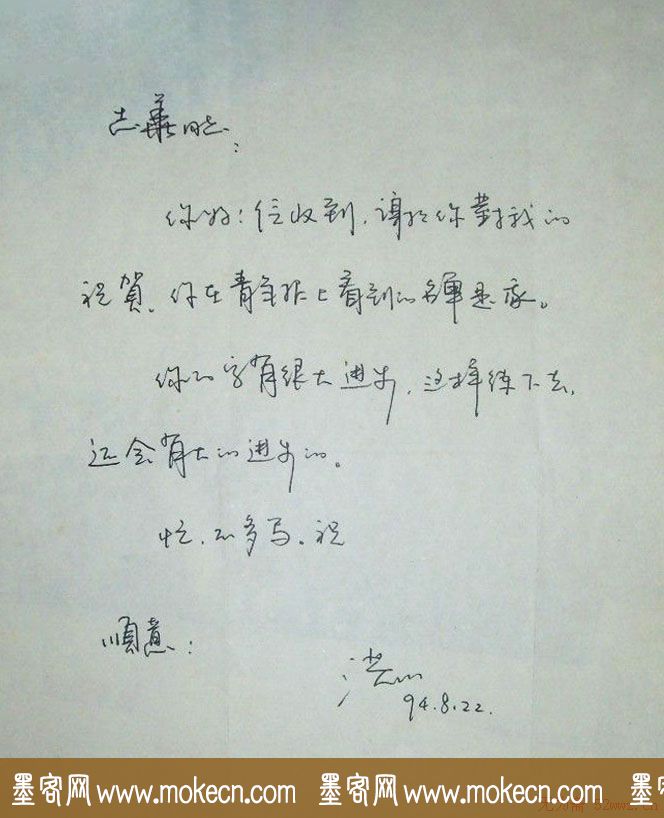 志華同志:
你好!信收到,謝谢你對我的
祝賀。你在青年报上看到的名單是我。
你的字有很大进步,这样练下去,
还会有大的进步的。
忙,不多写。祝
順意!
94.8.22.
墨客网 www.mokecn.com 墨客网 www.mokecn.com 墨客